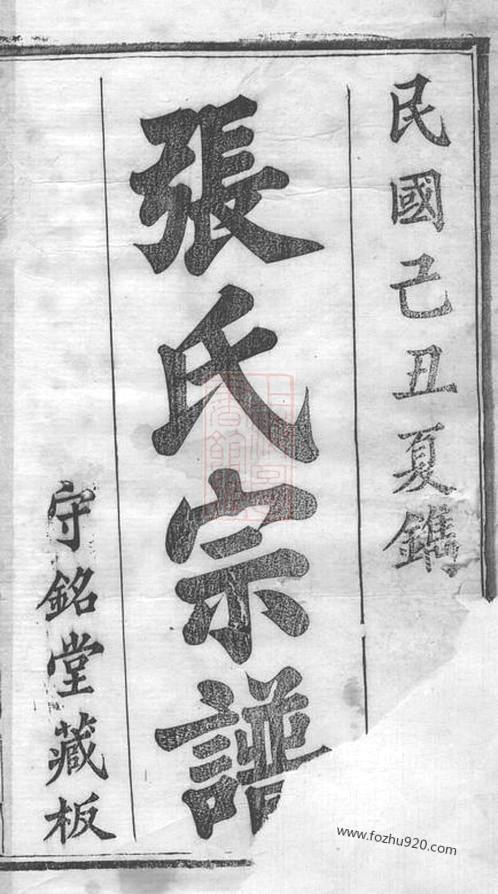 民國己丑夏鐫
張氏宗譜
守銘堂藏板
www.fozhu920.com